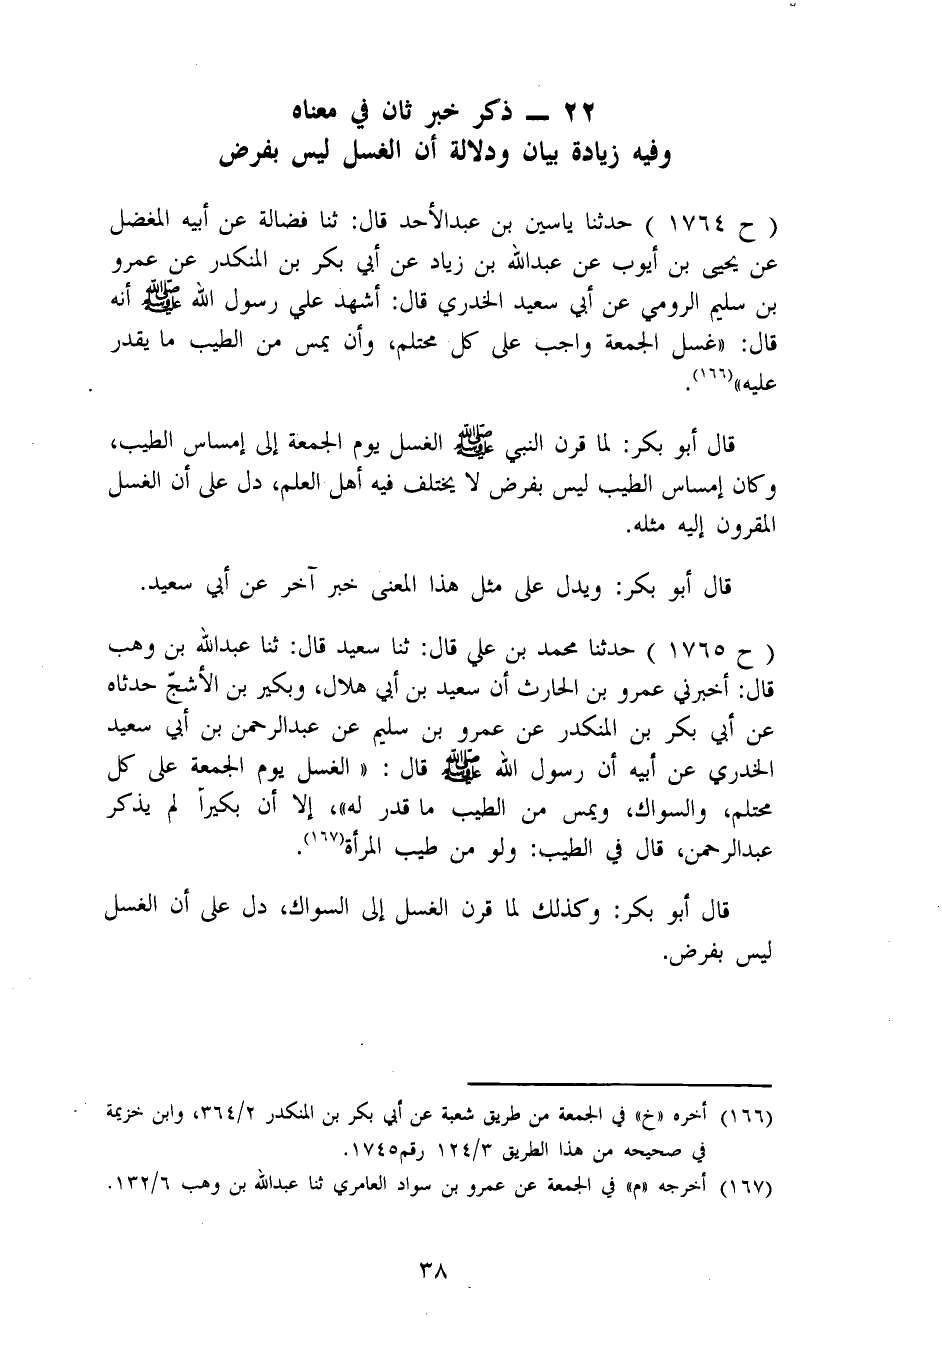 ٢٢ ـ ذكر خبر ثان في معناه
وفيه زيادة بيان ودلالة أن الغسل ليس بفرض
( ح ١٧٦٤ ) حدثنا ياسين بن عبدالأحد قال: ثنا فضالة عن أبيه المغضل
عن يحيى بن أيوب عن عبدالله بن زياد عن أبي بكر بن المنكدر عن عمرو
بن سليم الرومي عن أبي سعيد الخدري قال: أشهد علي رسول الله ﷺ أنه
قال: «غسل الجمعة واجب على كل محتلم، وأن يمس من الطيب ما يقدر
عليه»(١٦٦).
قال أبو بكر: لما قرن النبي ﷺ الغسل يوم الجمعة إلى إمساس الطيب،
وكان إمساس الطيب ليس بفرض لا يختلف فيه أهل العلم، دل على أن الغسل
المقرون إليه مثله.
قال أبو بكر: ويدل على مثل هذا المعنى خبر آخر عن أبي سعيد.
( ح ١٧٦٥ ) حدثنا محمد بن علي قال: ثنا سعيد قال: ثنا عبدالله بن وهب
قال: أخبرني عمرو بن الحارث أن سعيد بن أبي هلال، وبكير بن الأشجّ حدثاه
عن أبي بكر بن المنكدر عن عمرو بن سليم عن عبدالرحمن بن أبي سعيد
الخدري عن أبيه أن رسول الله ﷺ قال : « الغسل يوم الجمعة على كل
محتلم، والسواك، ويمس من الطيب ما قدر له»، إلا أن بكيراً لم يذكر
عبدالرحمن، قال في الطيب: ولو من طيب المرأة(١٦٧).
قال أبو بكر: وكذلك لما قرن الغسل إلى السواك، دل على أن الغسل
ليس بفرض.
(١٦٦) أخره «خ» في الجمعة من طريق شعبة عن أبي بكر بن المنكدر ٣٦٤/٢، وابن خزيمة
في صحيحه من هذا الطريق ١٢٤/٣ رقم١٧٤٥.
(١٦٧) أخرجه «م» في الجمعة عن عمرو بن سواد العامري ثنا عبدالله بن وهب ١٣٢/٦.
٣٨